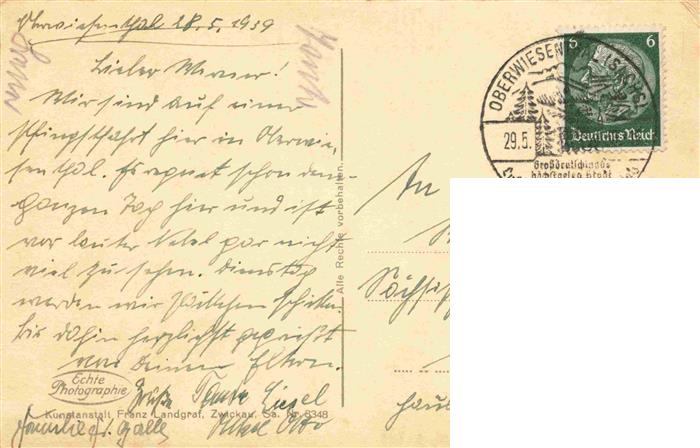 Oberwiesenthal 28.5.1939
Lieber Werner!
Wir sind auf einer
Pfingstfahrt hier in Oberwie-
senthal. Es regnet schon den
ganzen Tag hier und ist
vor lauter Nebel gar nicht
viel zu sehen. Dienstag
werden wir schicken
bis dahin herzlichst gegrüßt
von Deinen Eltern.
Grüße Tante Liesel
Onkel Otto
Familie Galle
Echte
Photographie
Kunstanstalt Franz Landgraf, Zwickau, Sa. Nr. 6348
Alle Rechte vorbehalten.
OBERWIESEN
29.5.
Großdeutschlands
höchstgeleg. Stadt
6 6
Deutsches Reich
An